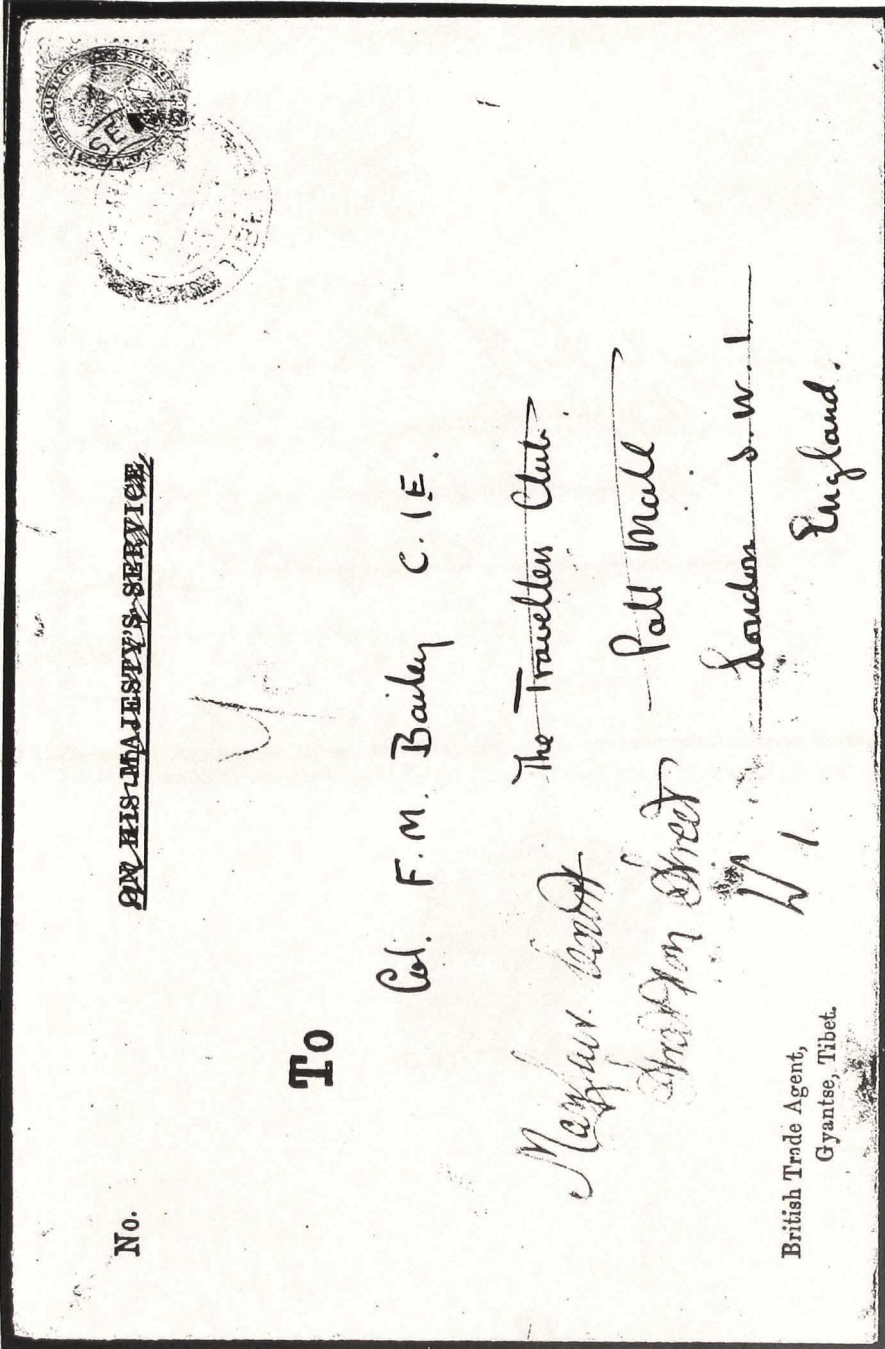 No.
ON HIS MAJESTY'S SERVICE
To
Col. F. M. Bailey C.I.E.
The Travellers Club
Pall Mall
London S.W.1
England.
Mayfair
Street
W 1
British Trade Agent,
Gyantse, Tibet.